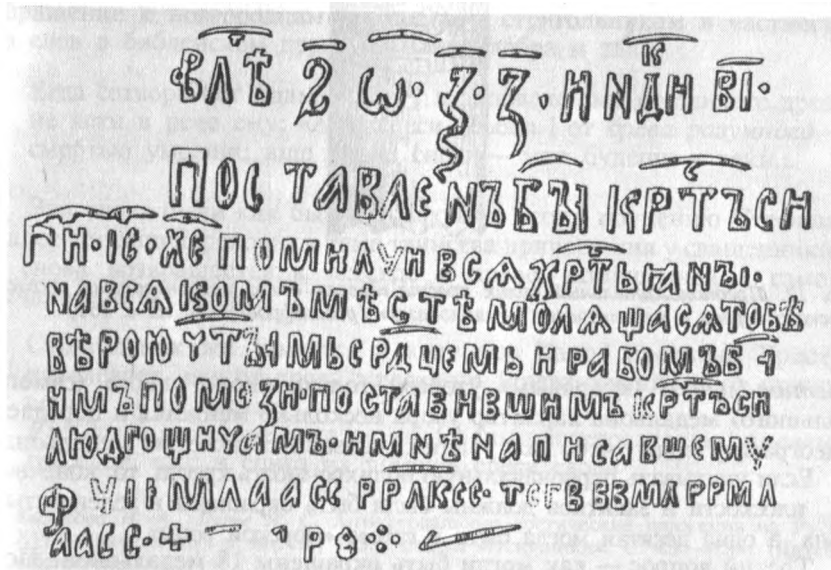 ВЛѢ Ѕ Ѡ·З·З· ИNДИ ВІ·
ПОСТАВЛЕNЪ БЪІ КРТЪ СИ
ГИ·ІС·ХЕ ПОМИЛУИ ВСѦ ХРТЬꙖNЪІ·
NА ВСѦКОМЪ МѢСТѢ МОЛѦЩАСѦ ТОБѢ
ВѢРОЮ ҮТЪІМЬ СРДЦЕМЬ И РАБОМЪ БІ
ИМЪ ПОМОЗИ·ПОСТАВИВШИМЪ КРТЪ СИ
ЛЮДГОЩИҮАМЪ·И МNѢ NАПИСАВШЕМУ
ФУІІРМЛААССРРЛКСС·ТСГВБВМАРРМЛ
ААСС·+